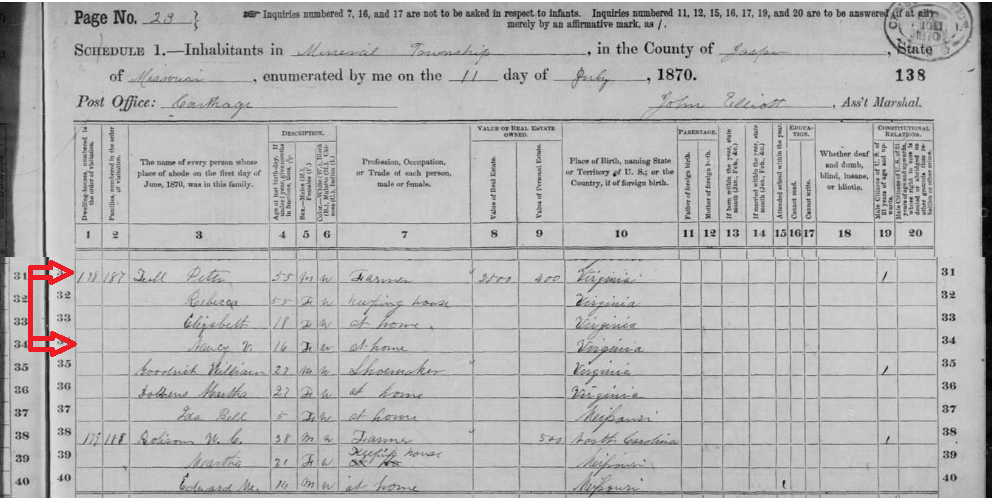 Page No. 23 }
☞ Inquiries numbered 7, 16, and 17 are not to be asked in respect to infants. Inquiries numbered 11, 12, 15, 16, 17, 19, and 20 are to be answered (if at all)
merely by an affirmative mark, as /.
SCHEDULE 1.—Inhabitants in Mineral Township, in the County of Jasper, State
of Missouri, enumerated by me on the 11 day of July, 1870. 138
Post Office: Carthage John Elliott, Ass't Marshal.
DESCRIPTION. VALUE OF REAL ESTATE OWNED. PARENTAGE. EDUCATION. CONSTITUTIONAL RELATIONS.
Dwelling-houses, numbered in the order of visitation.
Families, numbered in the order of visitation.
The name of every person whose place of abode on the first day of June, 1870, was in this family.
Age at last birth-day. If under 1 year, give months in fractions, thus,
Sex.—Males (M.), Females (F.)
Color.—White (W.), Black (B.), Mulatto (M.), Chinese (C.), Indian (I.)
Profession, Occupation, or Trade of each person, male or female.
Value of Real Estate.
Value of Personal Estate.
Place of Birth, naming State or Territory of U. S.; or the Country, if of foreign birth.
Father of foreign birth.
Mother of foreign birth.
If born within the year, state month (Jan., Feb., &c.)
If married within the year, state month (Jan., Feb., &c.)
Attended school within the year.
Cannot read.
Cannot write.
Whether deaf and dumb, blind, insane, or idiotic.
Male Citizens of U. S. of 21 years of age and upwards.
1 2 3 4 5 6 7 8 9 10 11 12 13 14 15 16 17 18 19 20
31 31 178 187 Peter 55 M W Farmer 2500 400 Virginia 1 31
32 32 Rebecca 55 F W Keeping house Virginia 32
33 33 Elizabeth 18 F W at home Virginia 33
34 34 Nancy V. 16 F W at home Virginia 34
35 35 Goodrich William 27 M W Shoemaker Virginia 1 35
36 36 Martha 27 F W at home Virginia 36
37 37 Ida Bell 5 F W at home Missouri 37
38 38 179 188 Robison W. C. 38 M W Farmer 500 North Carolina 1 38
39 39 Martha 21 F W Keeping house Missouri 39
40 40 Edward M. M W at home Missouri 1 40